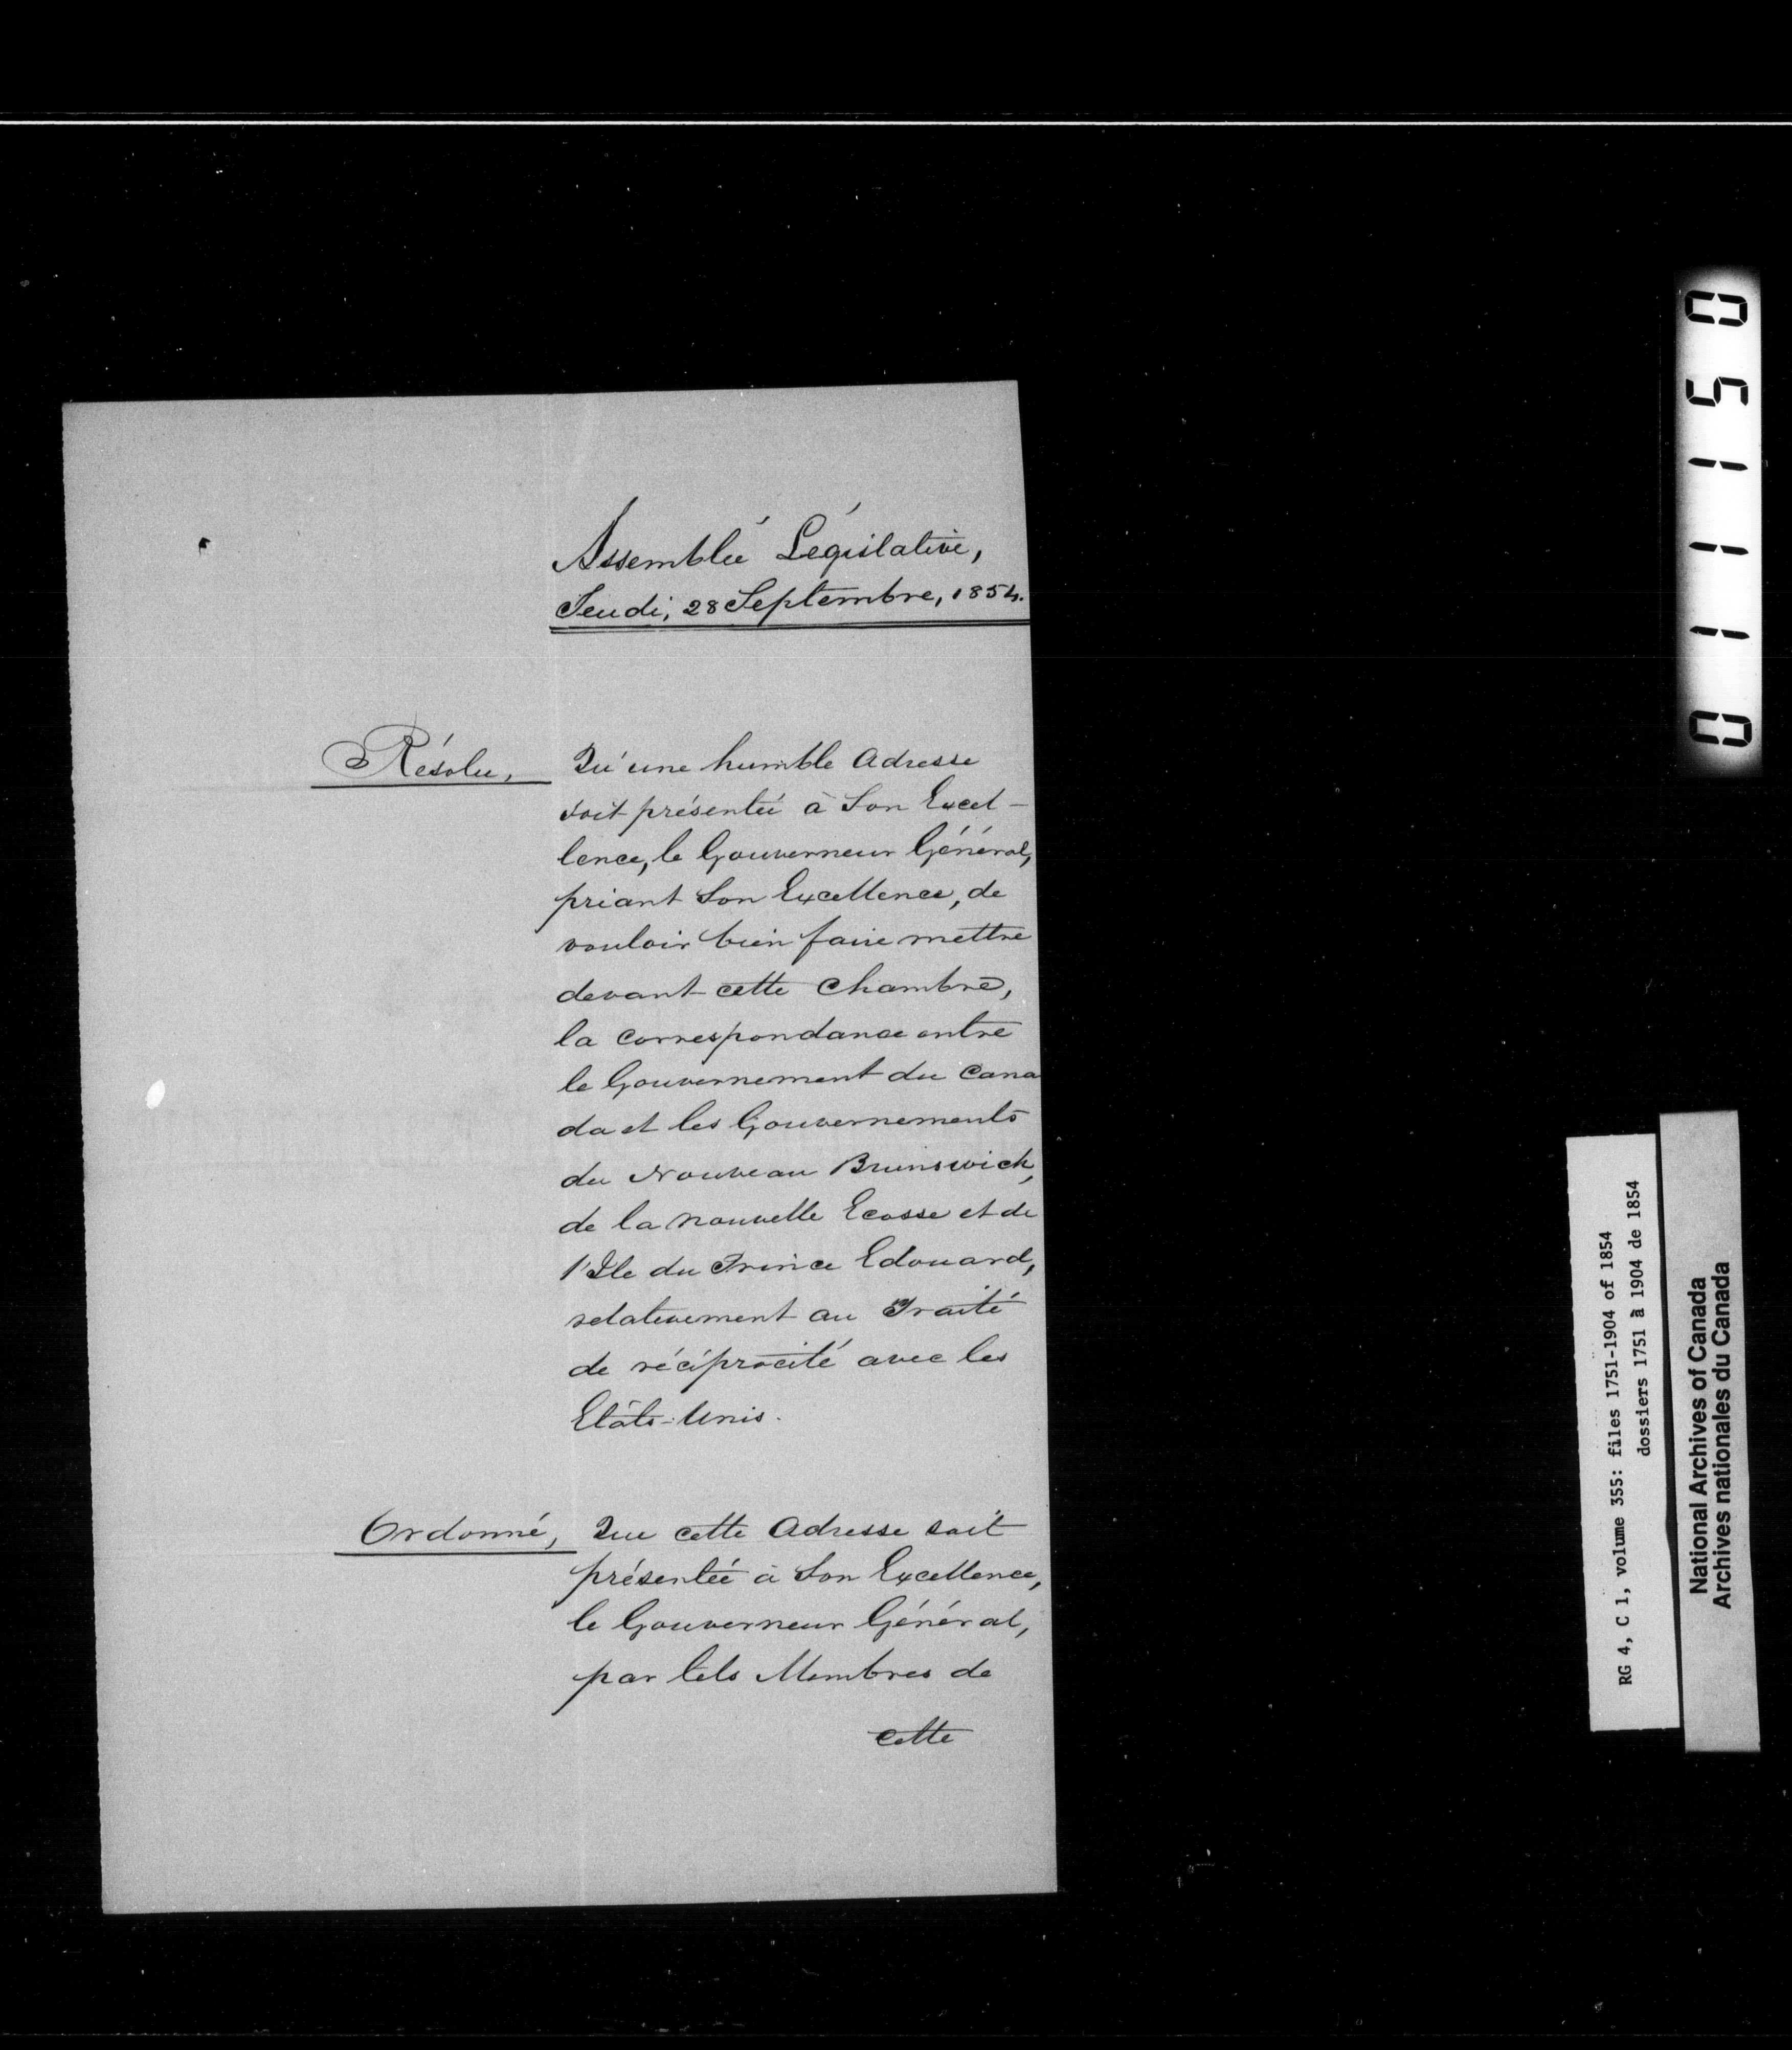 Assemblée Législative,
Jeudi, 28 Septembre, 1854.
Résolu, Qu'une humble Adresse
soit présentée à Son Excel-
lence, le Gouverneur Général,
priant Son Excellence, de
vouloir bien faire mettre
devant cette Chambre,
la Correspondance entre
le Gouvernement du Cana
da et les Gouvernements
du Nouveau Brunswick,
de la Nouvelle Ecosse et de
l'Ile du Prince Edouard,
relativement au Traité
de réciprocité avec les
Etâts-Unis.
Ordonné, Que cette Adresse soit
présentée à Son Excellence,
le Gouverneur Général,
par tels Membres de
cette
011150
RG 4, C 1, volume 355: files 1751-1904 of 1854
dossiers 1751 à 1904 de 1854
National Archives of Canada
Archives nationales du Canada